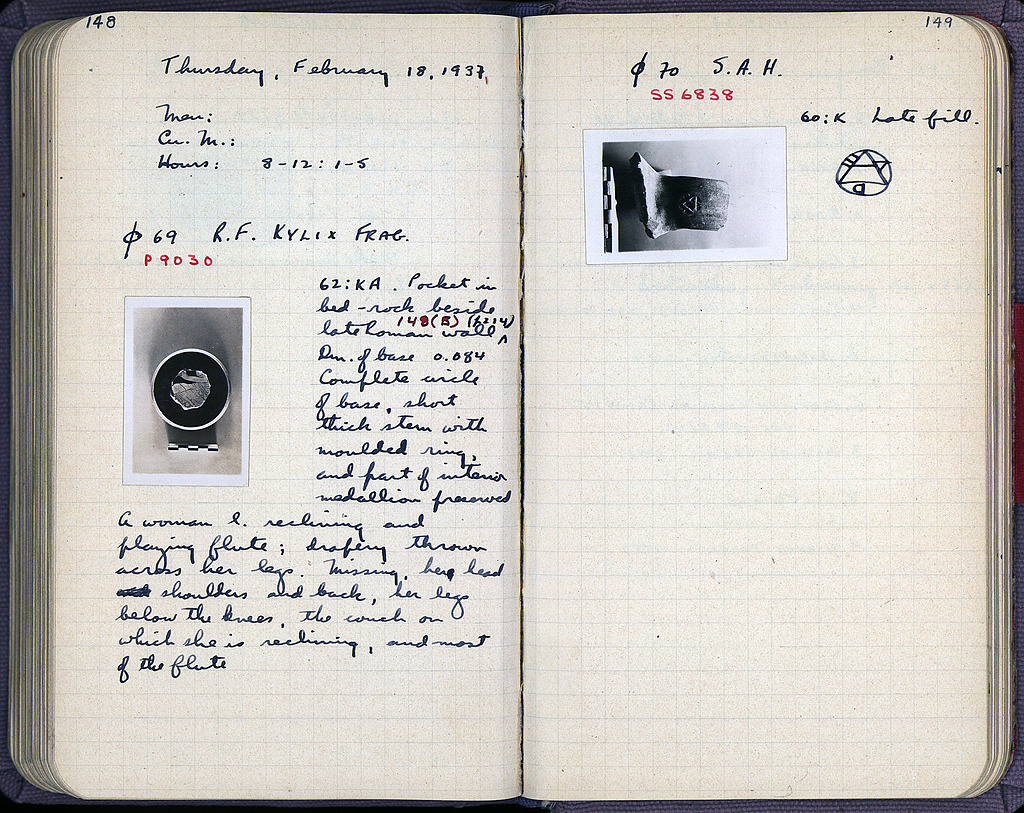 148
Thursday, February 18, 1937
Men:
Cu. M.:
Hours: 8-12: 1-5
ϕ 69 R.F. KYLIX FRAG.
P 9030
62:KA. Pocket in
bed-rock beside
148(B) (h214)
late Roman wall ^
Dm. of base 0.084
Complete circle
of base, short
thick stem with
moulded ring,
and part of interior
medallion preserved
A woman l. reclining and
playing flute; drapery thrown
across her legs. Missing, her head
shoulders and back, her legs
below the knees, the couch on
which she is reclining, and most
of the flute
149
ϕ 70 S.A.H.
SS 6838
60:K Late fill.